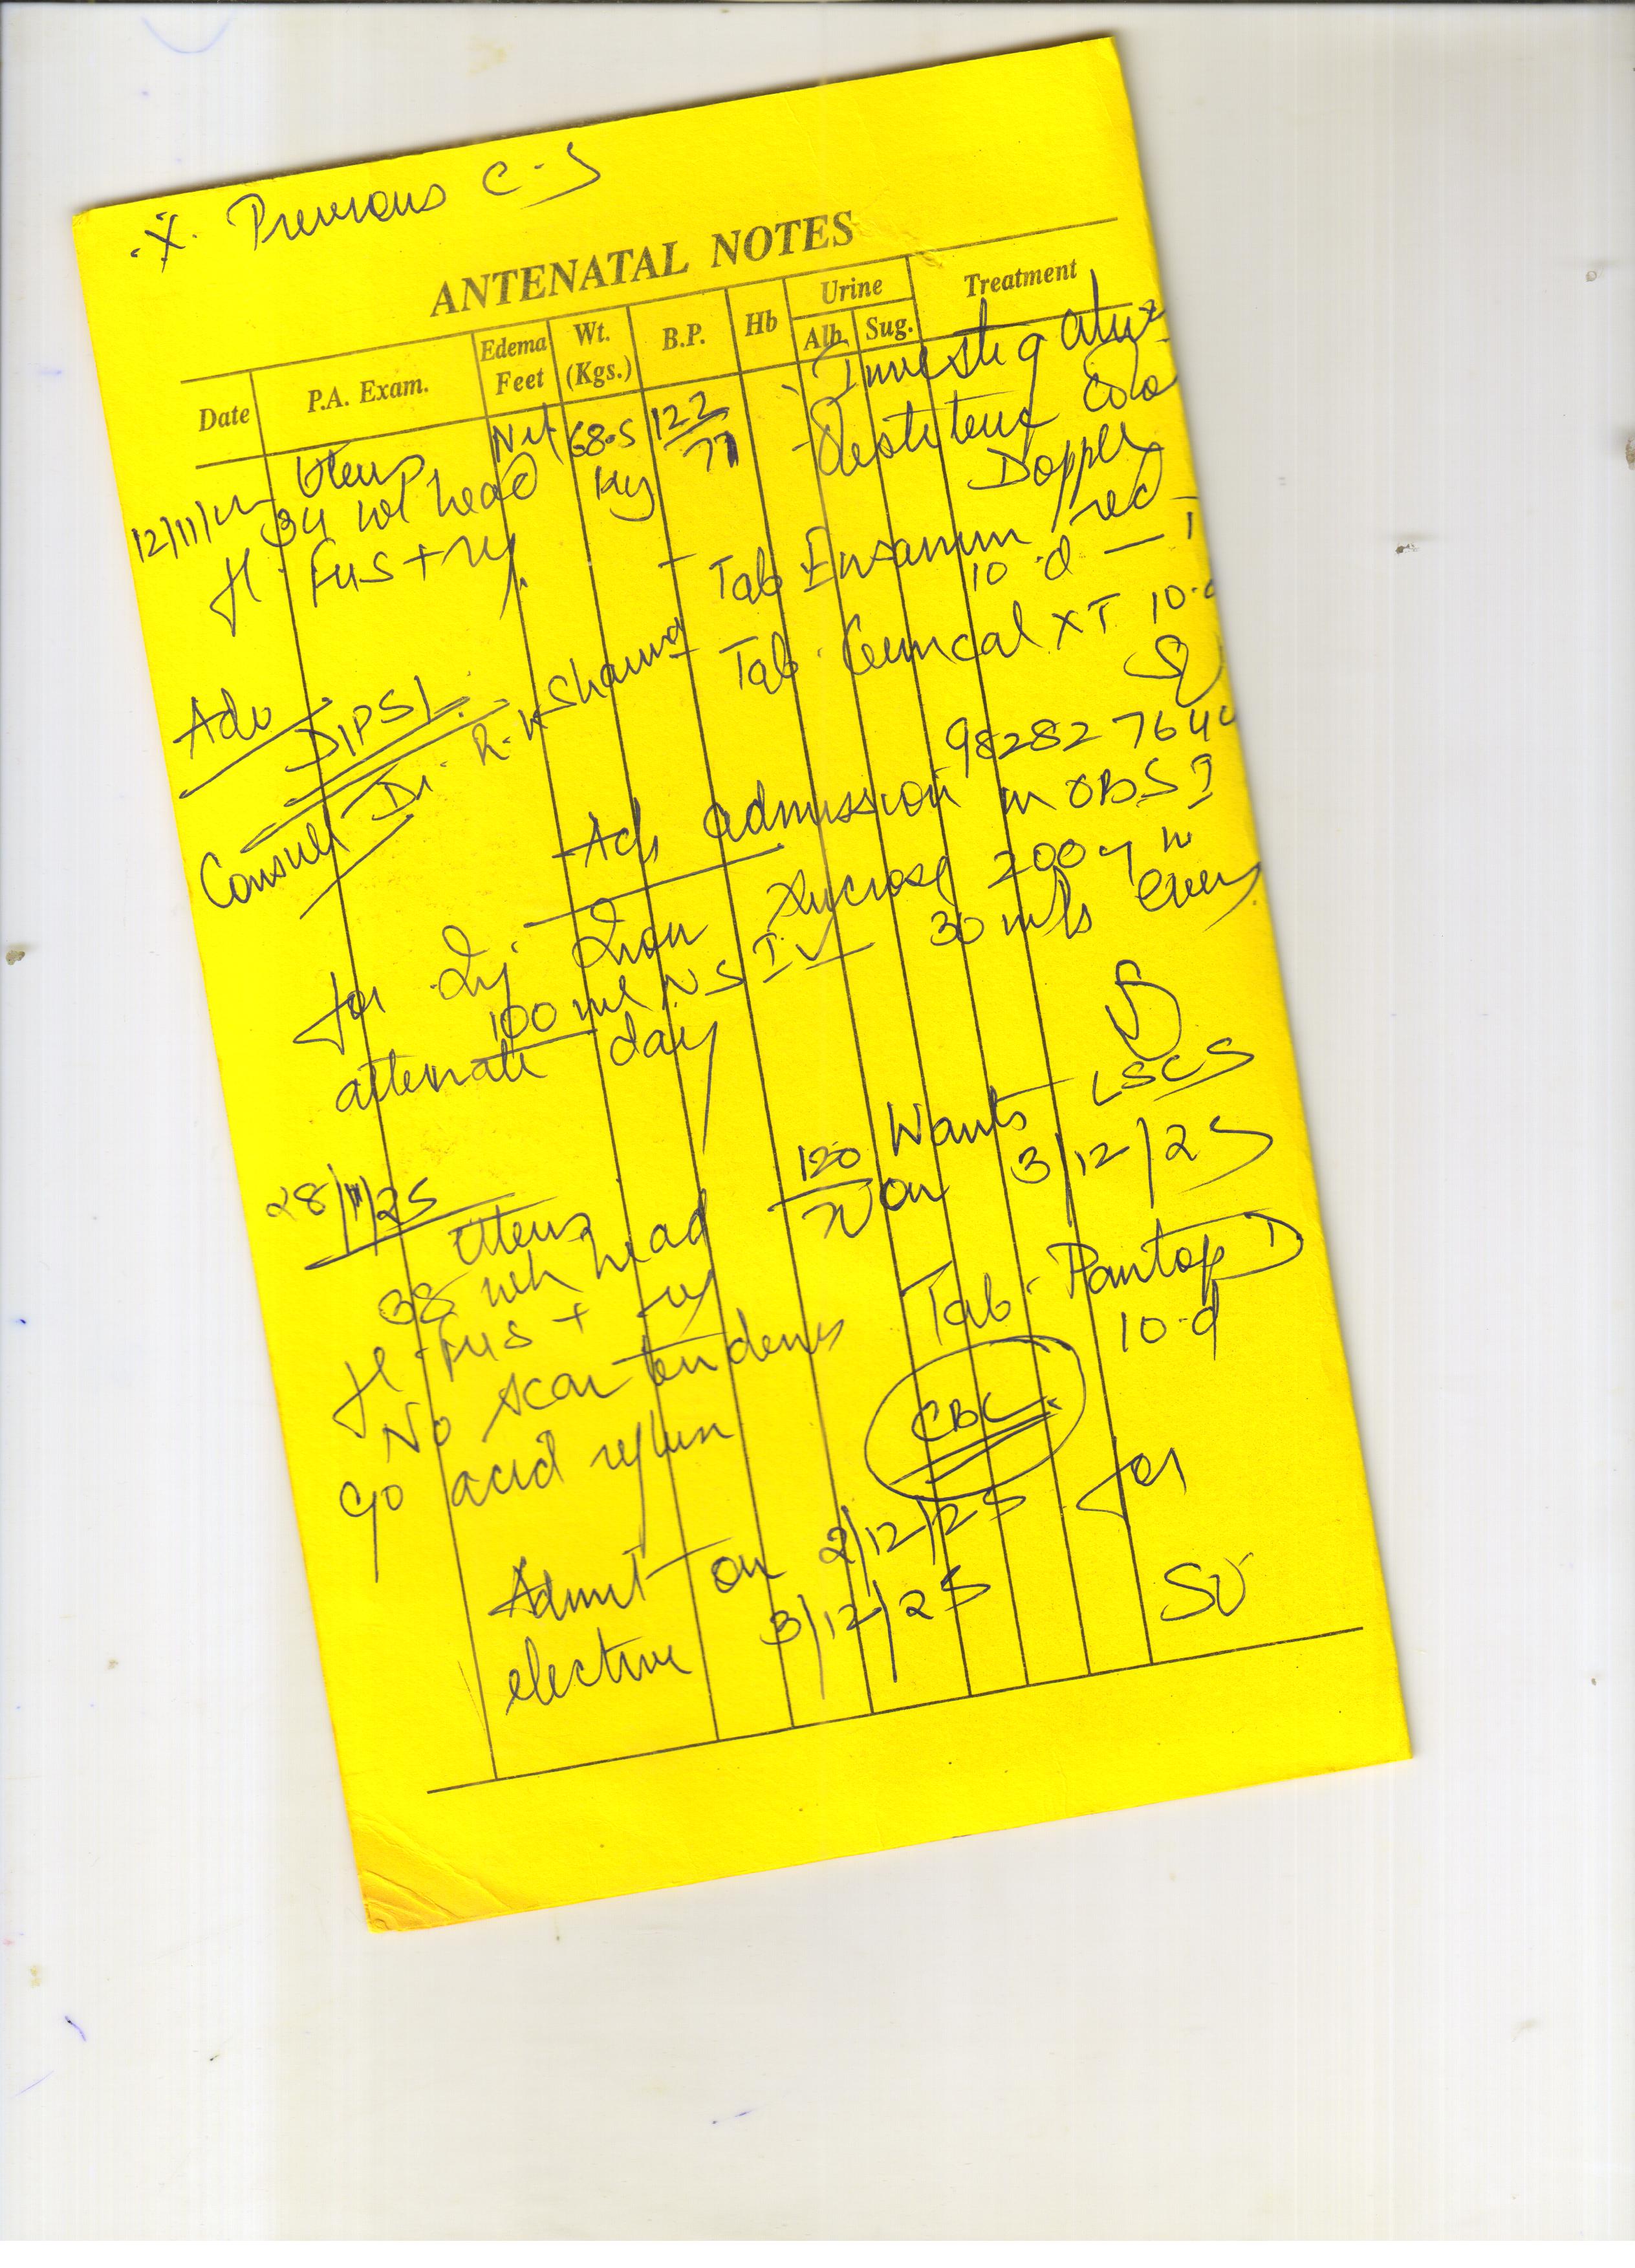 Previous C-S
ANTENATAL NOTES
Date P.A. Exam. Edema Feet Wt. (Kgs.) B.P. Hb Urine Alb. Sug. Treatment
12/11/ Uterus Nil 68.5 Kg 122/77 Investigations
34 wk head Obstetric Colo
Doppler
FHS + 
Tab
10 d — 1
Tab. Gemcal XT 10.d
Adv DIPSI.
Consult Dr. R. K Sharma
98282 764
Adv admission in OBS I
for Inj. Iron Sucrose 200 mg in
100 ml NS IV 30 mts every
alternate day
28/11/25 Uterus 120/70 Wants LSCS
on 3/12/25
38 wk head
FHS +
No scar tenderness Tab. Pantop D
10.d
C/o acid reflux
CBC.
Admit on 2/12/25 for
elective 3/12/25